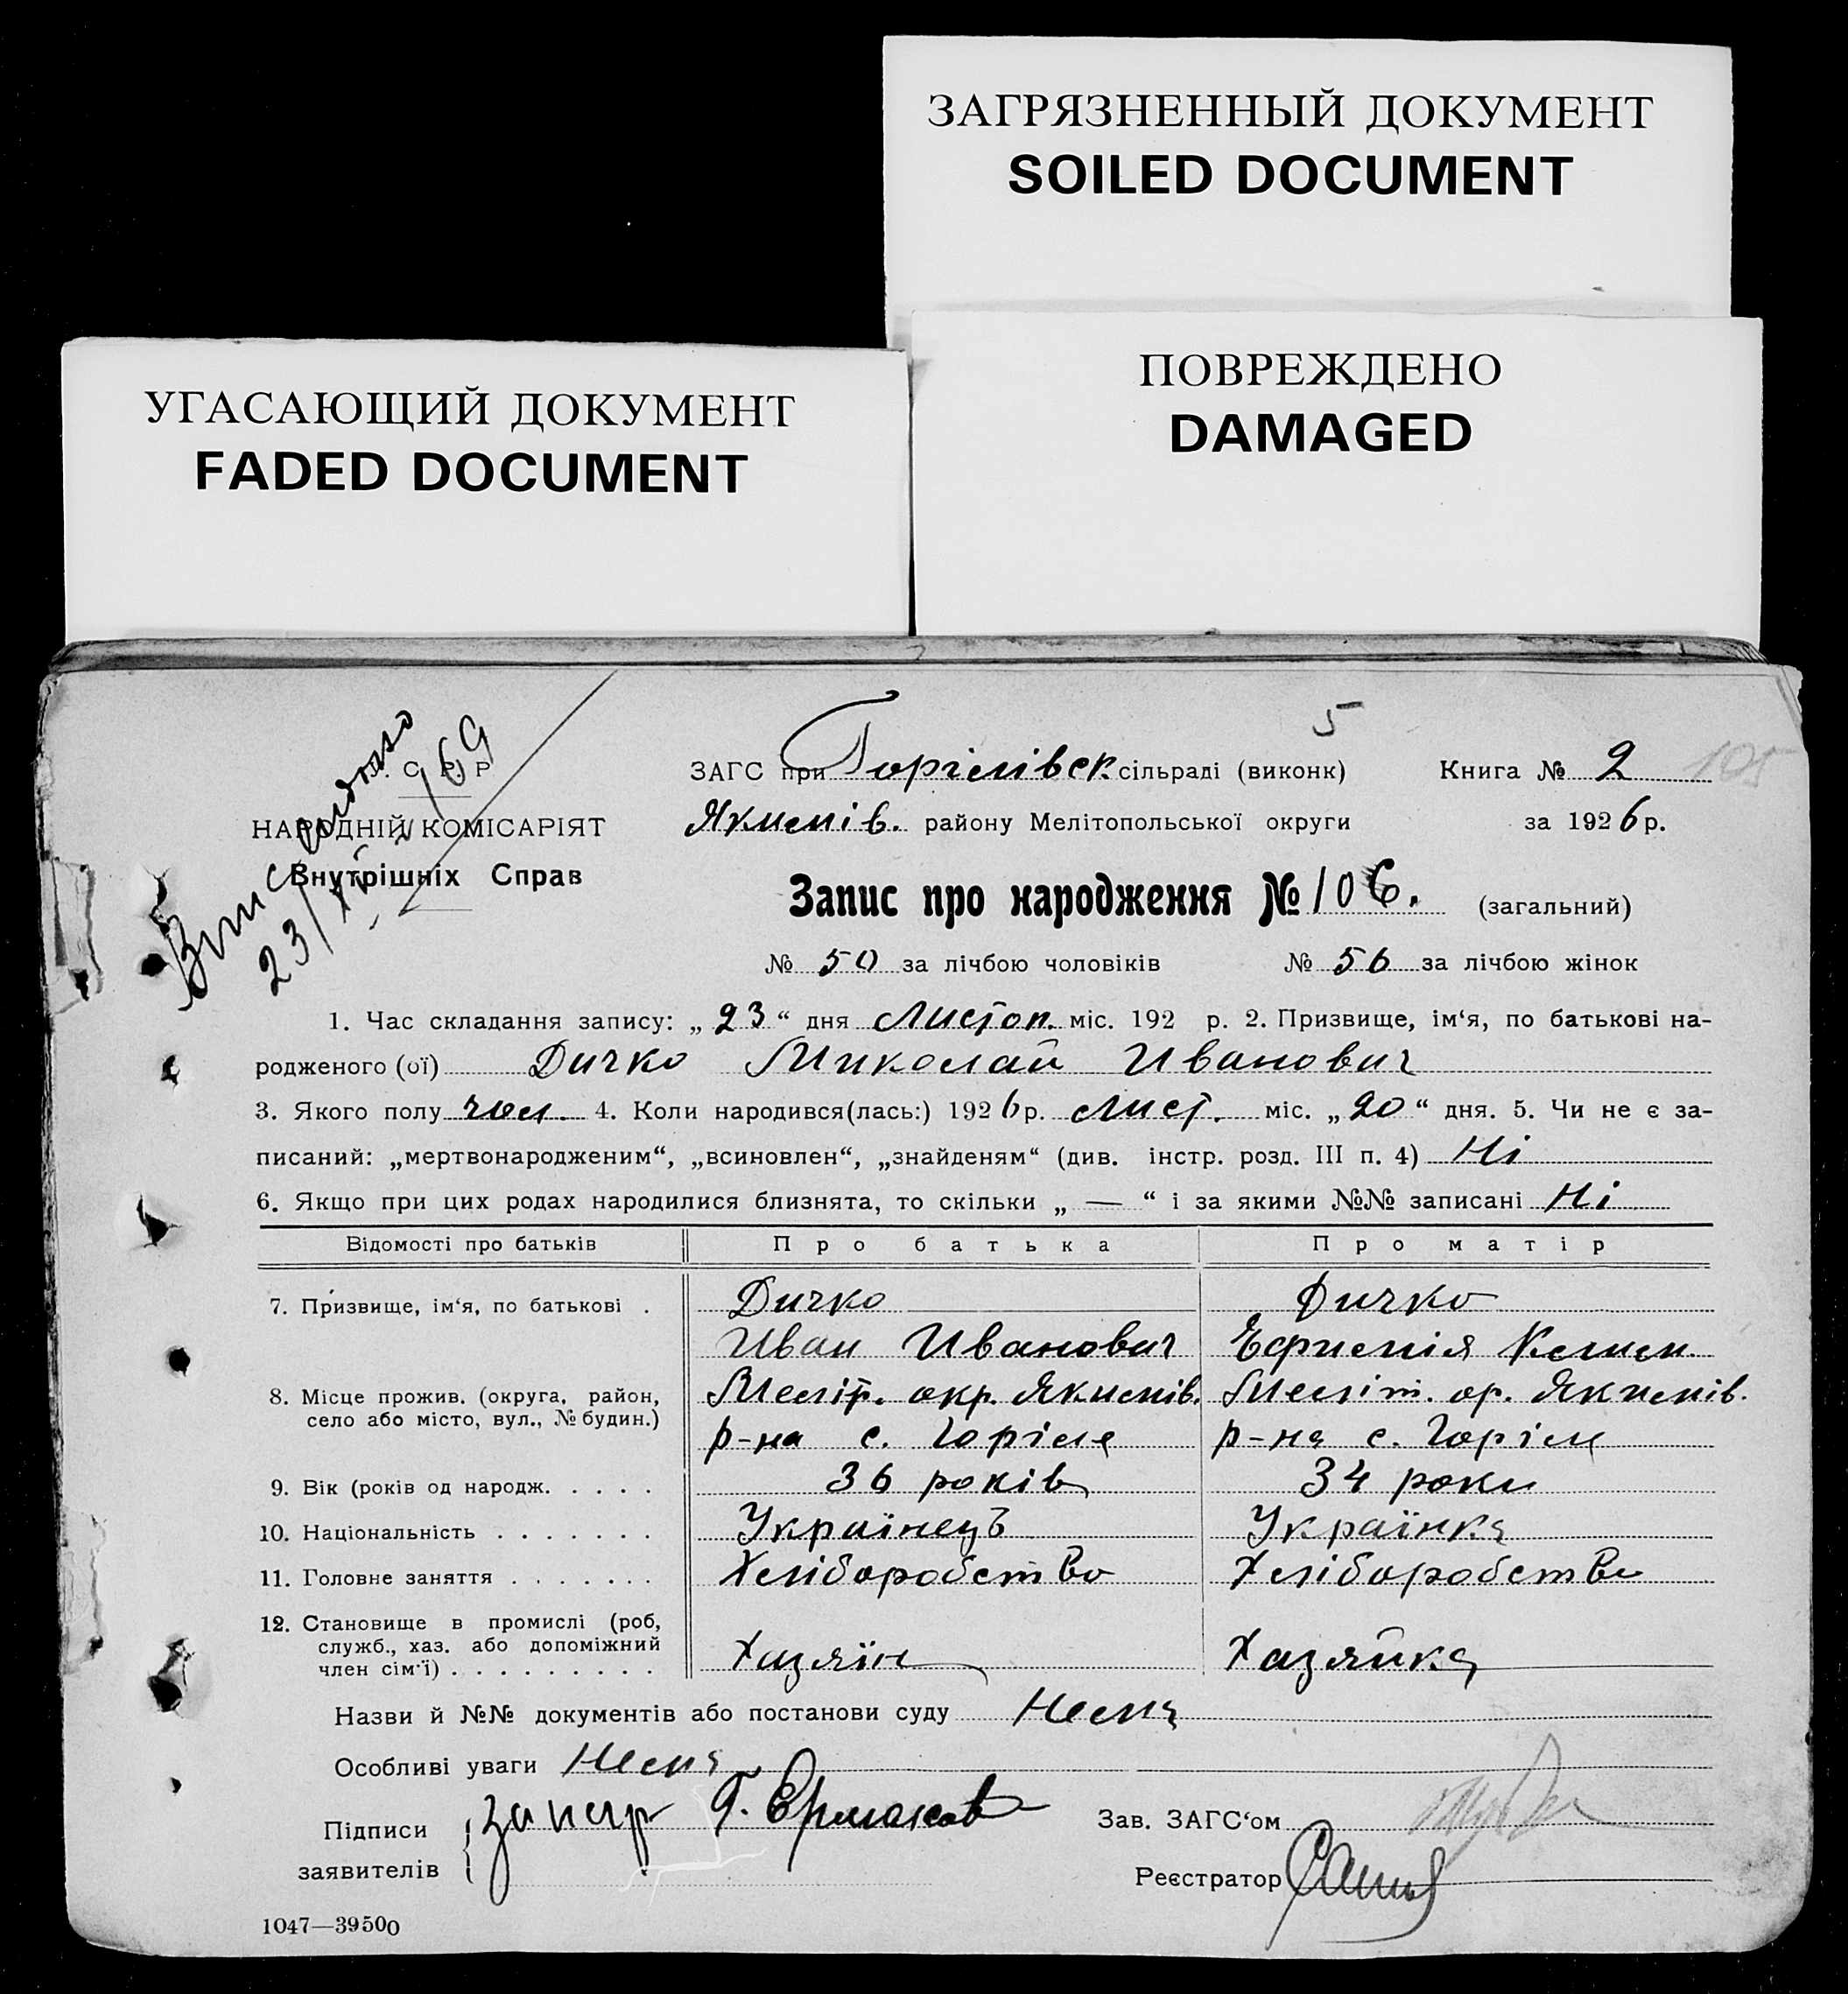 ЗАГРЯЗНЕННЫЙ ДОКУМЕНТ
SOILED DOCUMENT
УГАСАЮЩИЙ ДОКУМЕНТ
FADED DOCUMENT
ПОВРЕЖДЕНО
DAMAGED
5
С. Р. Р.
НАРОДНІЙ КОМІСАРІЯТ
Внутрішніх Справ
23/XI 69
ЗАГС при Горілівск. сільраді (виконк) Книга № 2 105
Якимів. району Мелітопольської округи за 1926 р.
Запис про народження № 106. (загальний)
№ 50 за лічбою чоловіків № 56 за лічбою жінок
1. Час складання запису: „23“ дня Листоп. міс. 192 р. 2. Призвище, ім‘я, по батькові на-
родженого (ої) Дичко Миколай Иванович
3. Якого полу чол. 4. Коли народився(лась:) 1926 р. Лист. міс. „20“ дня. 5. Чи не є за-
писаний: „мертвонародженим“, „всиновлен“, „знайденям“ (див. інстр. розд. III п. 4) Ні
6. Якщо при цих родах народилися близнята, то скільки „ — “ і за якими №№ записані Ні
Відомості про батьків Про батька Про матір
7. Призвище, ім‘я, по батькові . Дичко Дичко
Иван Иванович Ефимія Клим.
8. Місце прожив. (округа, район, село або місто, вул., № будин.) Меліт. окр. Якимів. Меліт. ор. Якимів.
р-на с. Горіле р-на с. Горіле
9. Вік (років од народж. . . . . 36 років 34 роки
10. Національність . . . . . . . Українець Українка
11. Головне заняття . . . . . . . Хліборобство Хліборобство
12. Становище в промислі (роб, служб., хаз. або допоміжний член сім‘ї) . . . . . . . . . Хазяїн Хазяйка
Назви й №№ документів або постанови суду Нема
Особливі уваги Нема
Підписи заявителів Г. Ермаков Зав. ЗАГС‘ом
Реєстратор
1047—39500